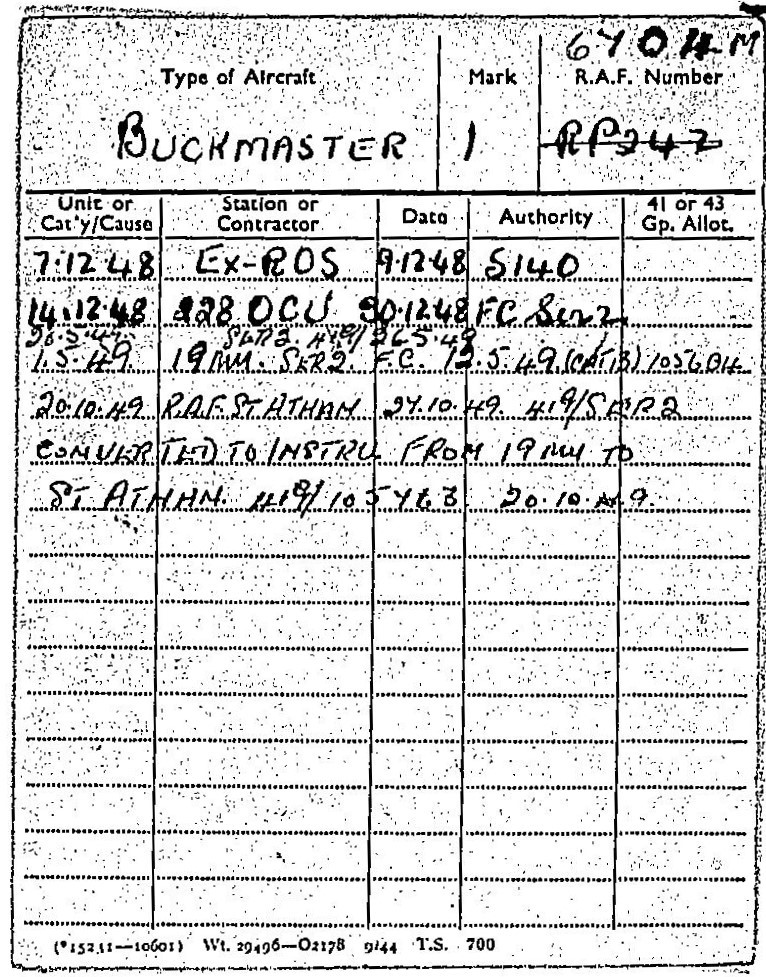 6704M
Type of Aircraft Mark R.A.F. Number
BUCKMASTER 1 RP242
Unit or Cat'y/Cause Station or Contractor Date Authority 41 or 43 Gp. Allot.
7.12.48 EX-ROS 9.12.48 S140
14.12.48 228 OCU 30.12.48 FC
26.5.49
1.5.49 19 MU. F.C. 12.5.49 (CAT B)
20.10.49 R.A.F. ST ATHAN 27.10.49. 419/
CONVERTED TO INSTRU FROM 19 MU TO
ST ATHAN. 20.10.49.
(*15211—10601) Wt. 29496—O2178 9/44 T.S. 700